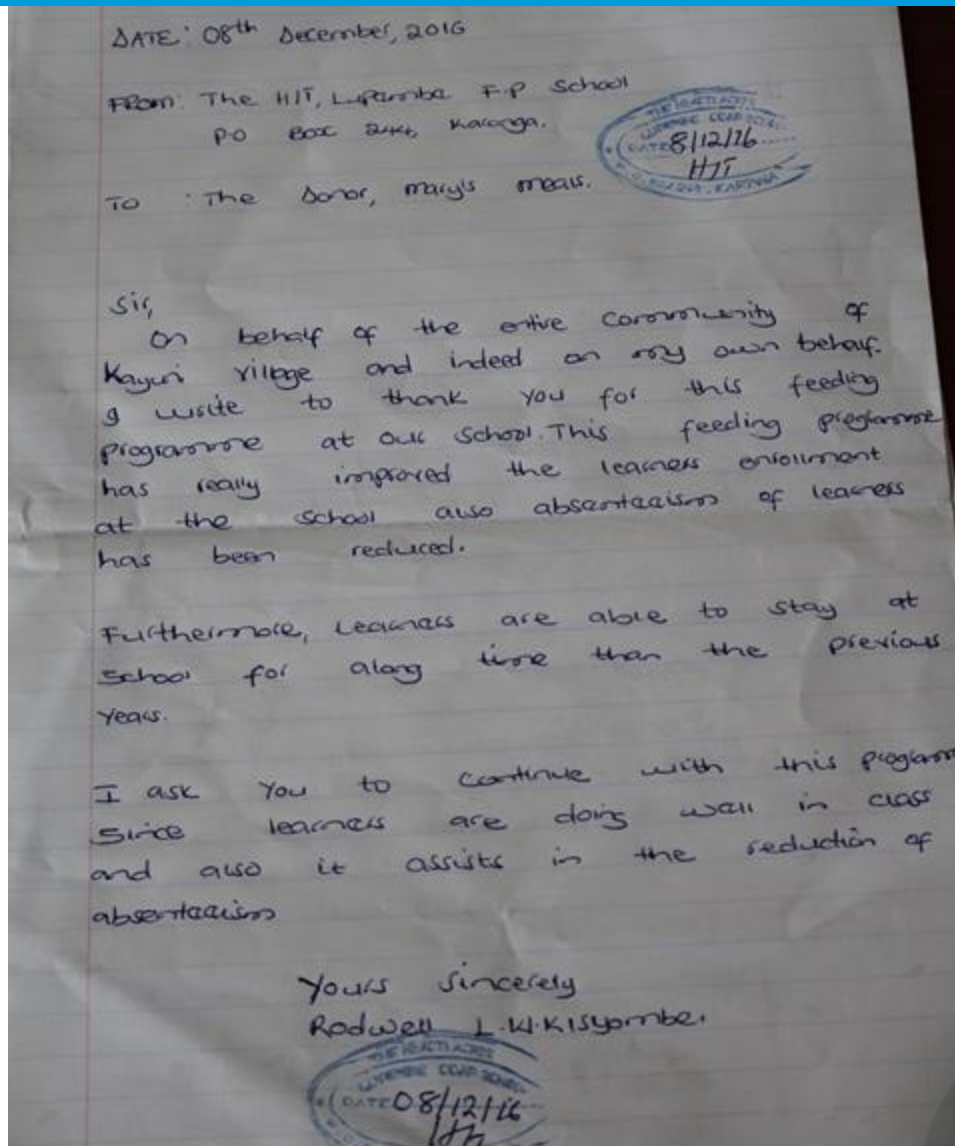 DATE: 08th December, 2016
From: The H/T, Lupembe F.P School
PO Box 244, Karonga.
8/12/16
H/T
TO : The Donor, mary's meals.
Sir,
On behalf of the entire community of
Kayuni village and indeed on my own behalf.
I write to thank you for this feeding
programme at our school. This feeding programme
has really improved the learners enrolment
at the school also absenteeism of learners
has been reduced.
Furthermore, Learners are able to stay at
school for along time than the previous
years.
I ask you to continue with this program
since learners are doing well in class
and also it assists in the reduction of
absenteeism
Yours sincerely
Rodwell L.W. Kisyombe.
THE HEAD TEACHER
DATE 08/12/16